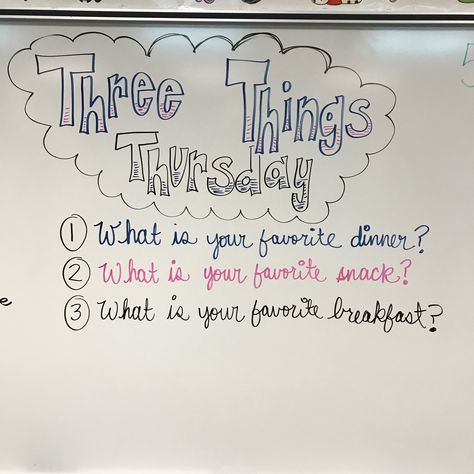 Three Things
Thursday
① What is your favorite dinner?
② What is your favorite snack?
③ What is your favorite breakfast?